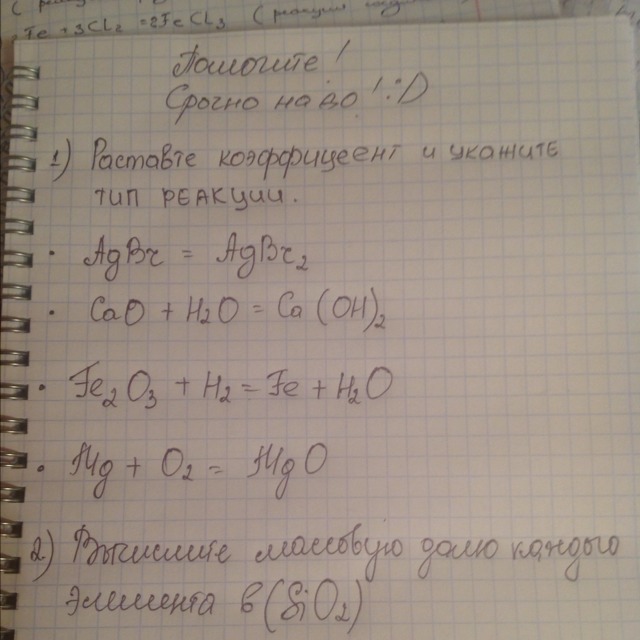 Fe + 3Cl2 = 2FeCl3 (реакция
Помогите!
Срочно надо! :D
1) Раставте коэффицеент и укажите
тип реакции.
· AgBr = AgBr₂
· CaO + H₂O = Ca(OH)₂
· Fe₂O₃ + H₂ = Fe + H₂O
· Mg + O₂ = MgO
2) Вычислите массовую долю каждого
элемента в (SiO₂)